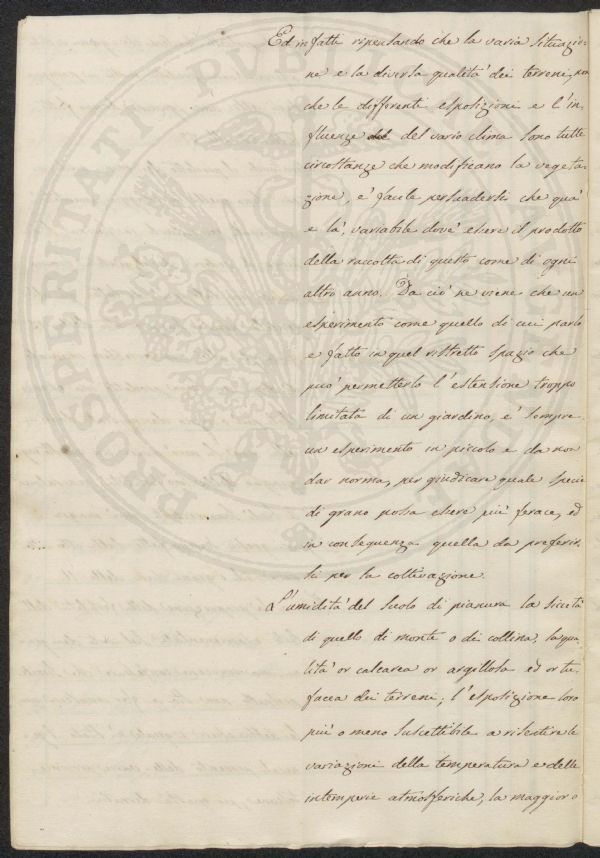 Ed infatti ripensando che la varia situazio-
ne e la diversa qualità dei terreni, non
che le differenti esposizioni e l'in-
fluenze del vario clima sono tutte
circostanze che modificano la vegeta-
zione, e' facile persuadersi che quà
e là, variabile dove' essere il prodotto
della raccolta di questo come di ogni
altro anno. Da ciò ne viene che un
esperimento come quello di cui parlo
e fatto in quel ristretto spazio che
può permetterlo l'estensione troppo
limitata di un giardino, e' sempre
un esperimento in piccolo e da non
dar norma, per giudicare quale specie
di grano possa essere più ferace, ed
in conseguenza quella da preferir-
si per la coltivazione.
L'umidità del suolo di pianura la siccità
di quello di monte o dei collina, la qua-
lità or calcarea or argillosa ed or tu-
facea dei terreni; l'esposizione loro
più o meno suscettibile a risentire le
variazioni della temperatura e delle
intemperie atmosferiche, la maggior o
PROSPERITATI PUBLICAE